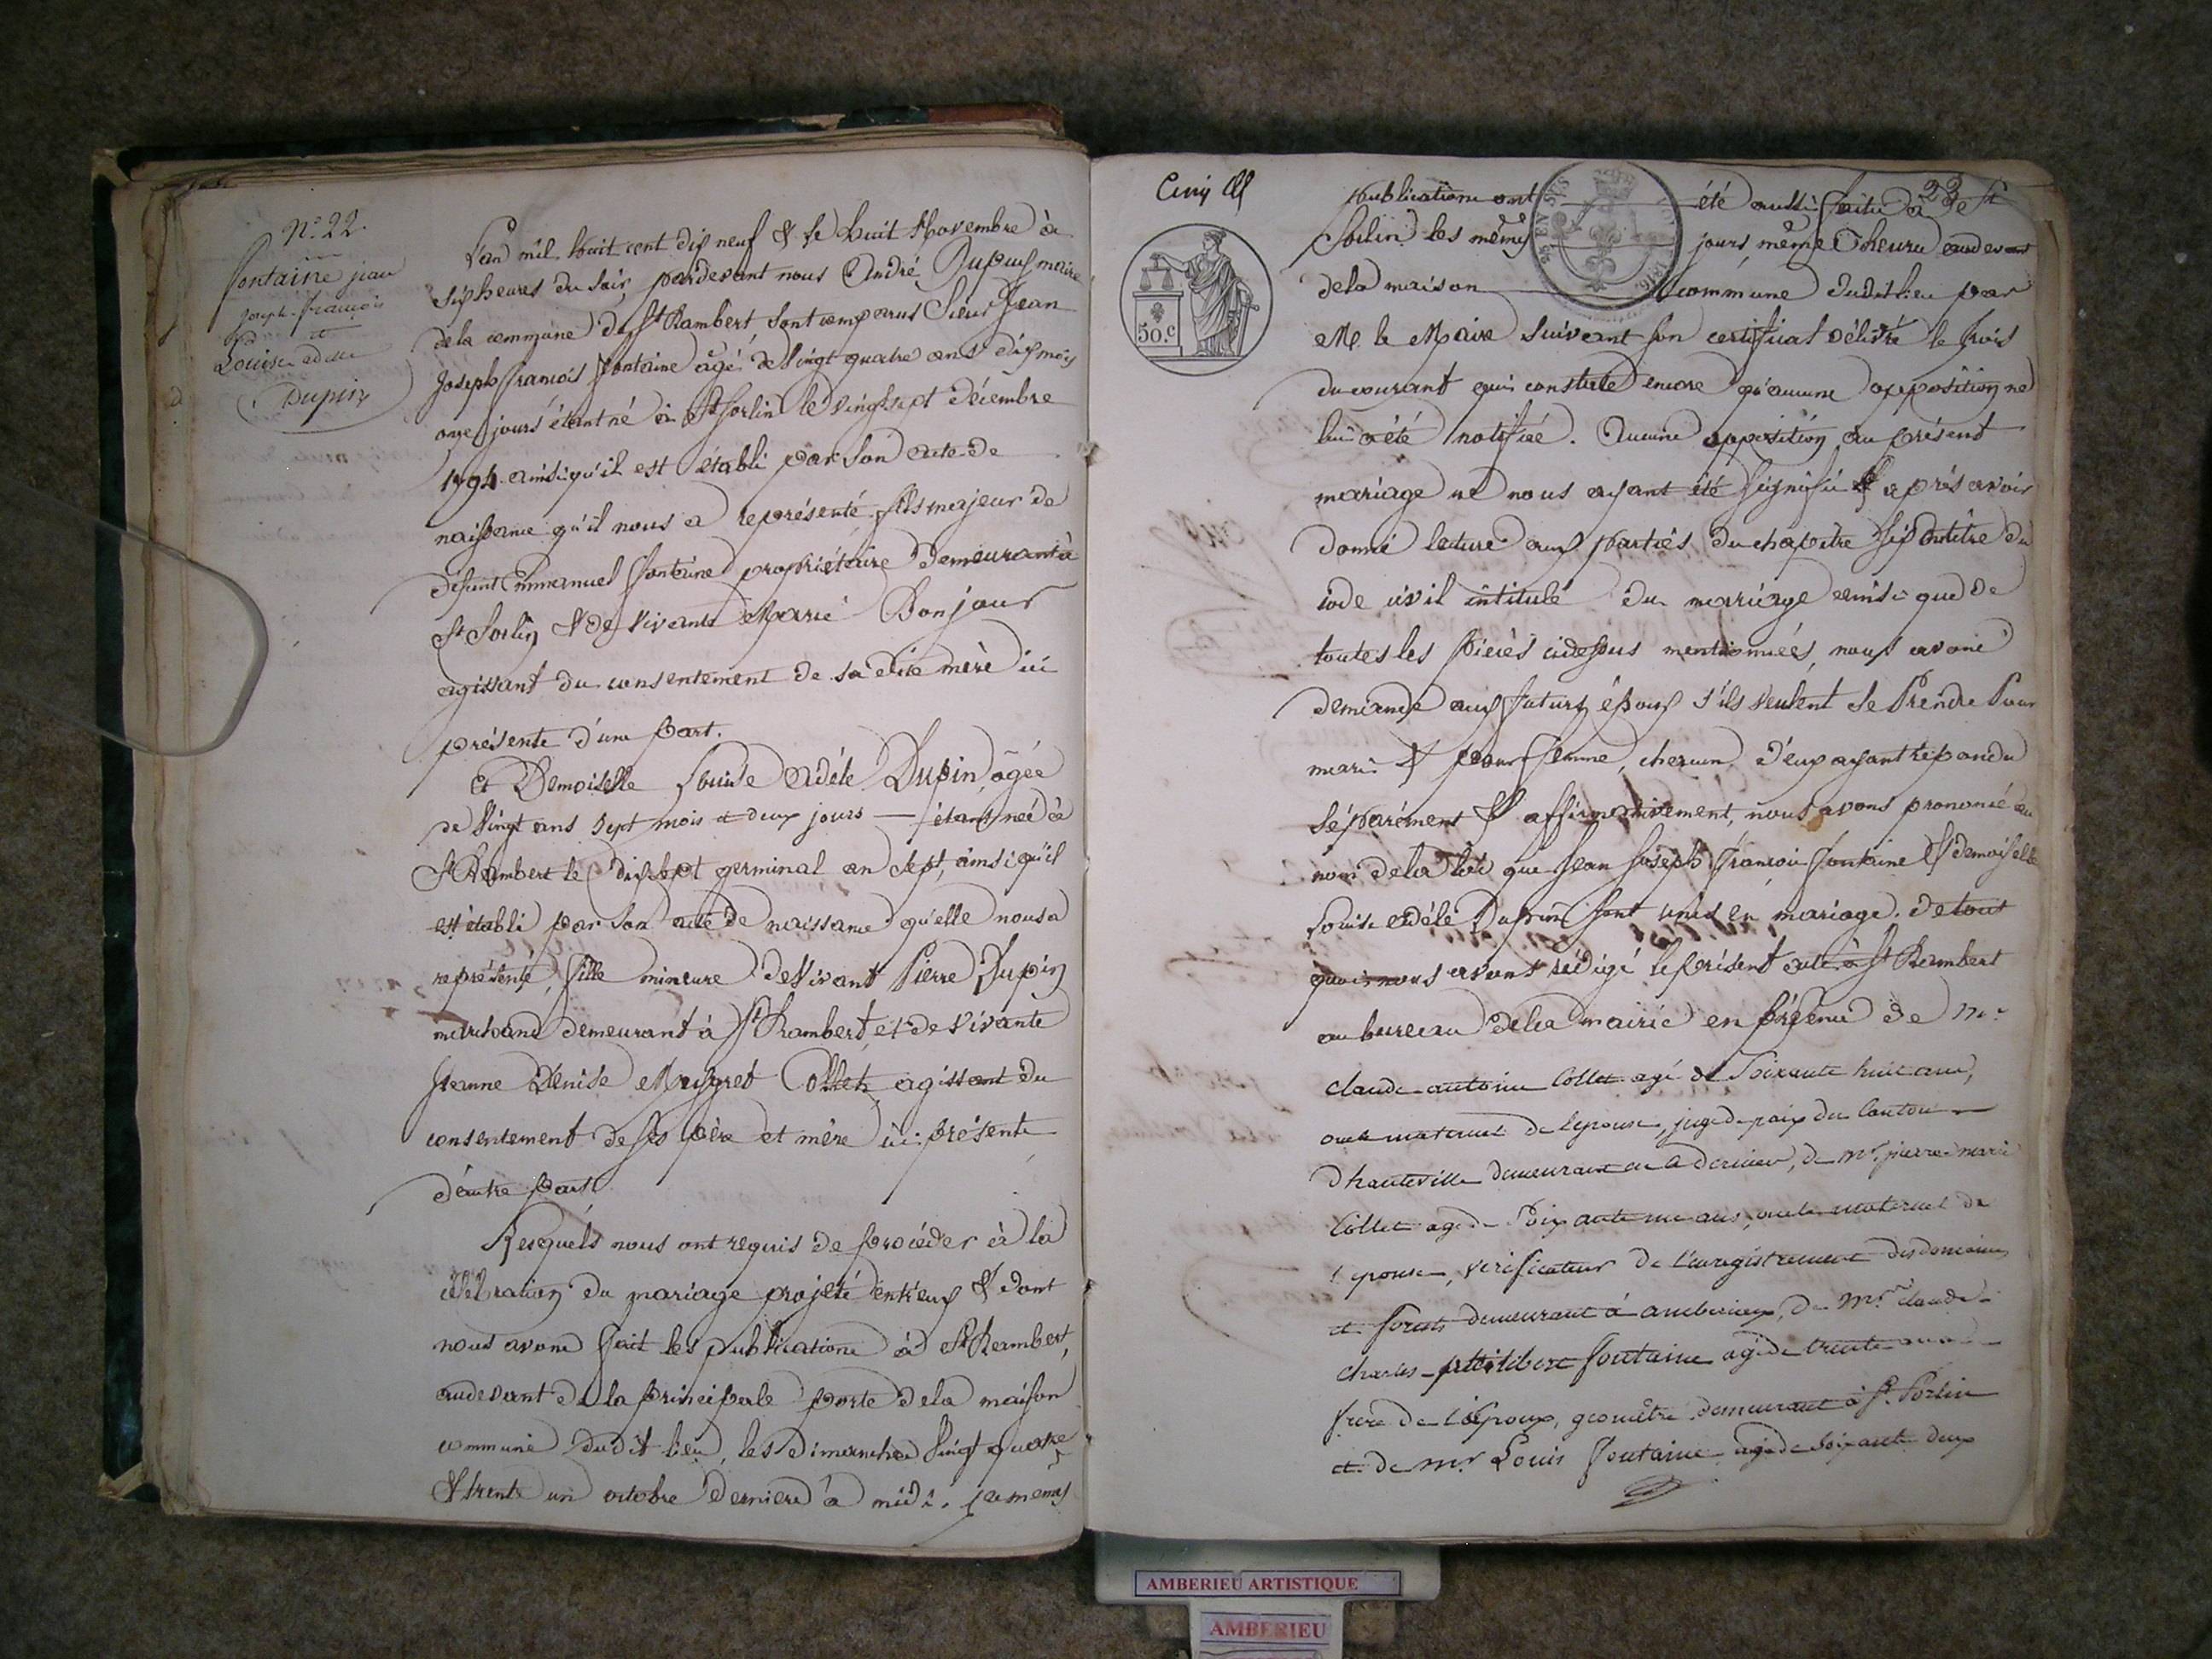 N° 22.
fontaine jean
joseph françois
et
Louise adelle
Dupin
L'an mil huit cent dix neuf & le huit Novembre à
six heures du soir, pardevant nous André Dupuy maire
de la commune de St Rambert sont comparus Sieur Jean
Joseph françois fontaine âgé de vingt quatre ans dix mois
onze jours étant né à St Sorlin le vingt sept Décembre
1794 ainsi qu'il est établi par son acte de
naissance qu'il nous a représenté fils majeur de
défunt Emmanuel fontaine propriétaire demeurant à
St Sorlin & de vivante Marie Bonjour
agissant du consentement de sa dite mère ici
présente d'une part.
Et Demoiselle Louise Adèle Dupin, âgée
de vingt ans sept mois et deux jours — étant née à
St Rambert le dix sept germinal an sept, ainsi qu'il
est établi par son acte de naissance qu'elle nous a
représenté, fille mineure de vivant Pierre Dupin
marchand demeurant à St Rambert, et de vivante
Jeanne Denise Collet, agissant du
consentement de ses père et mère ici présente
d'autre part.
Lesquels nous ont requis de procéder à la
célébration du mariage projeté entr'eux & dont
nous avons fait les publications à St Rambert,
audevant de la principale porte de la maison
commune dudit lieu, les dimanches vingt quatre
& trente un octobre dernier à midi. les mêmes
Cinq
50.c
23
publications ont été aussi faites à St
Sorlin les mêmes jours, même heure audevant
de la maison commune dudit lieu par
M. le Maire suivant son certificat délivré le trois
du courant qui constate encore qu'aucune opposition ne
lui a été notifiée. Aucune opposition au présent
mariage ne nous ayant été signifiée & après avoir
donné lecture aux parties du chapitre six du titre du
code civil intitulé du mariage ainsi que de
toutes les pièces cidessus mentionnées, nous avons
demandé aux futurs époux s'ils veulent se Prendre Pour
mari & pour femme, chacun d'eux ayant répondu
séparément & affirmativement, nous avons prononcé au
nom de la loi que Jean Joseph françois fontaine & demoiselle
Louise Adèle Dupin sont unis en mariage. de tout
quoi nous avons rédigé le présent acte à St Rambert
au bureau de la mairie en présence de Mr
claude antoine Collet agé de Soixante huit ans,
oncle maternel de l'epouse, juge de paix du Canton
d'hauteville demeurant au dernier, de Mr pierre marie
Collet agé de Soixante un ans, oncle maternel de
l'epouse, vérificateur de l'enregistrement des domaines
et forets demeurant à amberieux, de Mr claude
charles fontaine agé de trente ans
frere de l'époux, geomètre demeurant à St Sorlin
et de Mr Louis fontaine agé de Soixante deux
AMBERIEU ARTISTIQUE
AMBERIEU